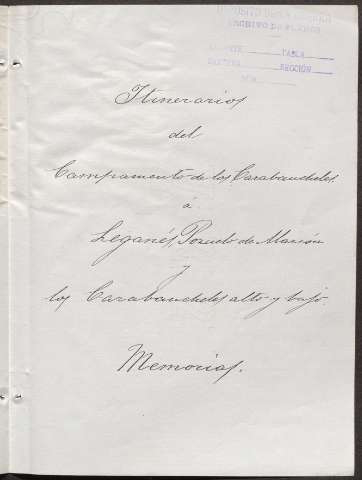 DEPOSITO DE LA GUERRA
ARCHIVO DE PLANOS
TABLA
SECCIÓN
Itinerarios
del
Campamento de los Carabancheles
á
Leganés, Pozuelo de Alarcón
y
los Carabancheles alto y bajo.
Memorias.